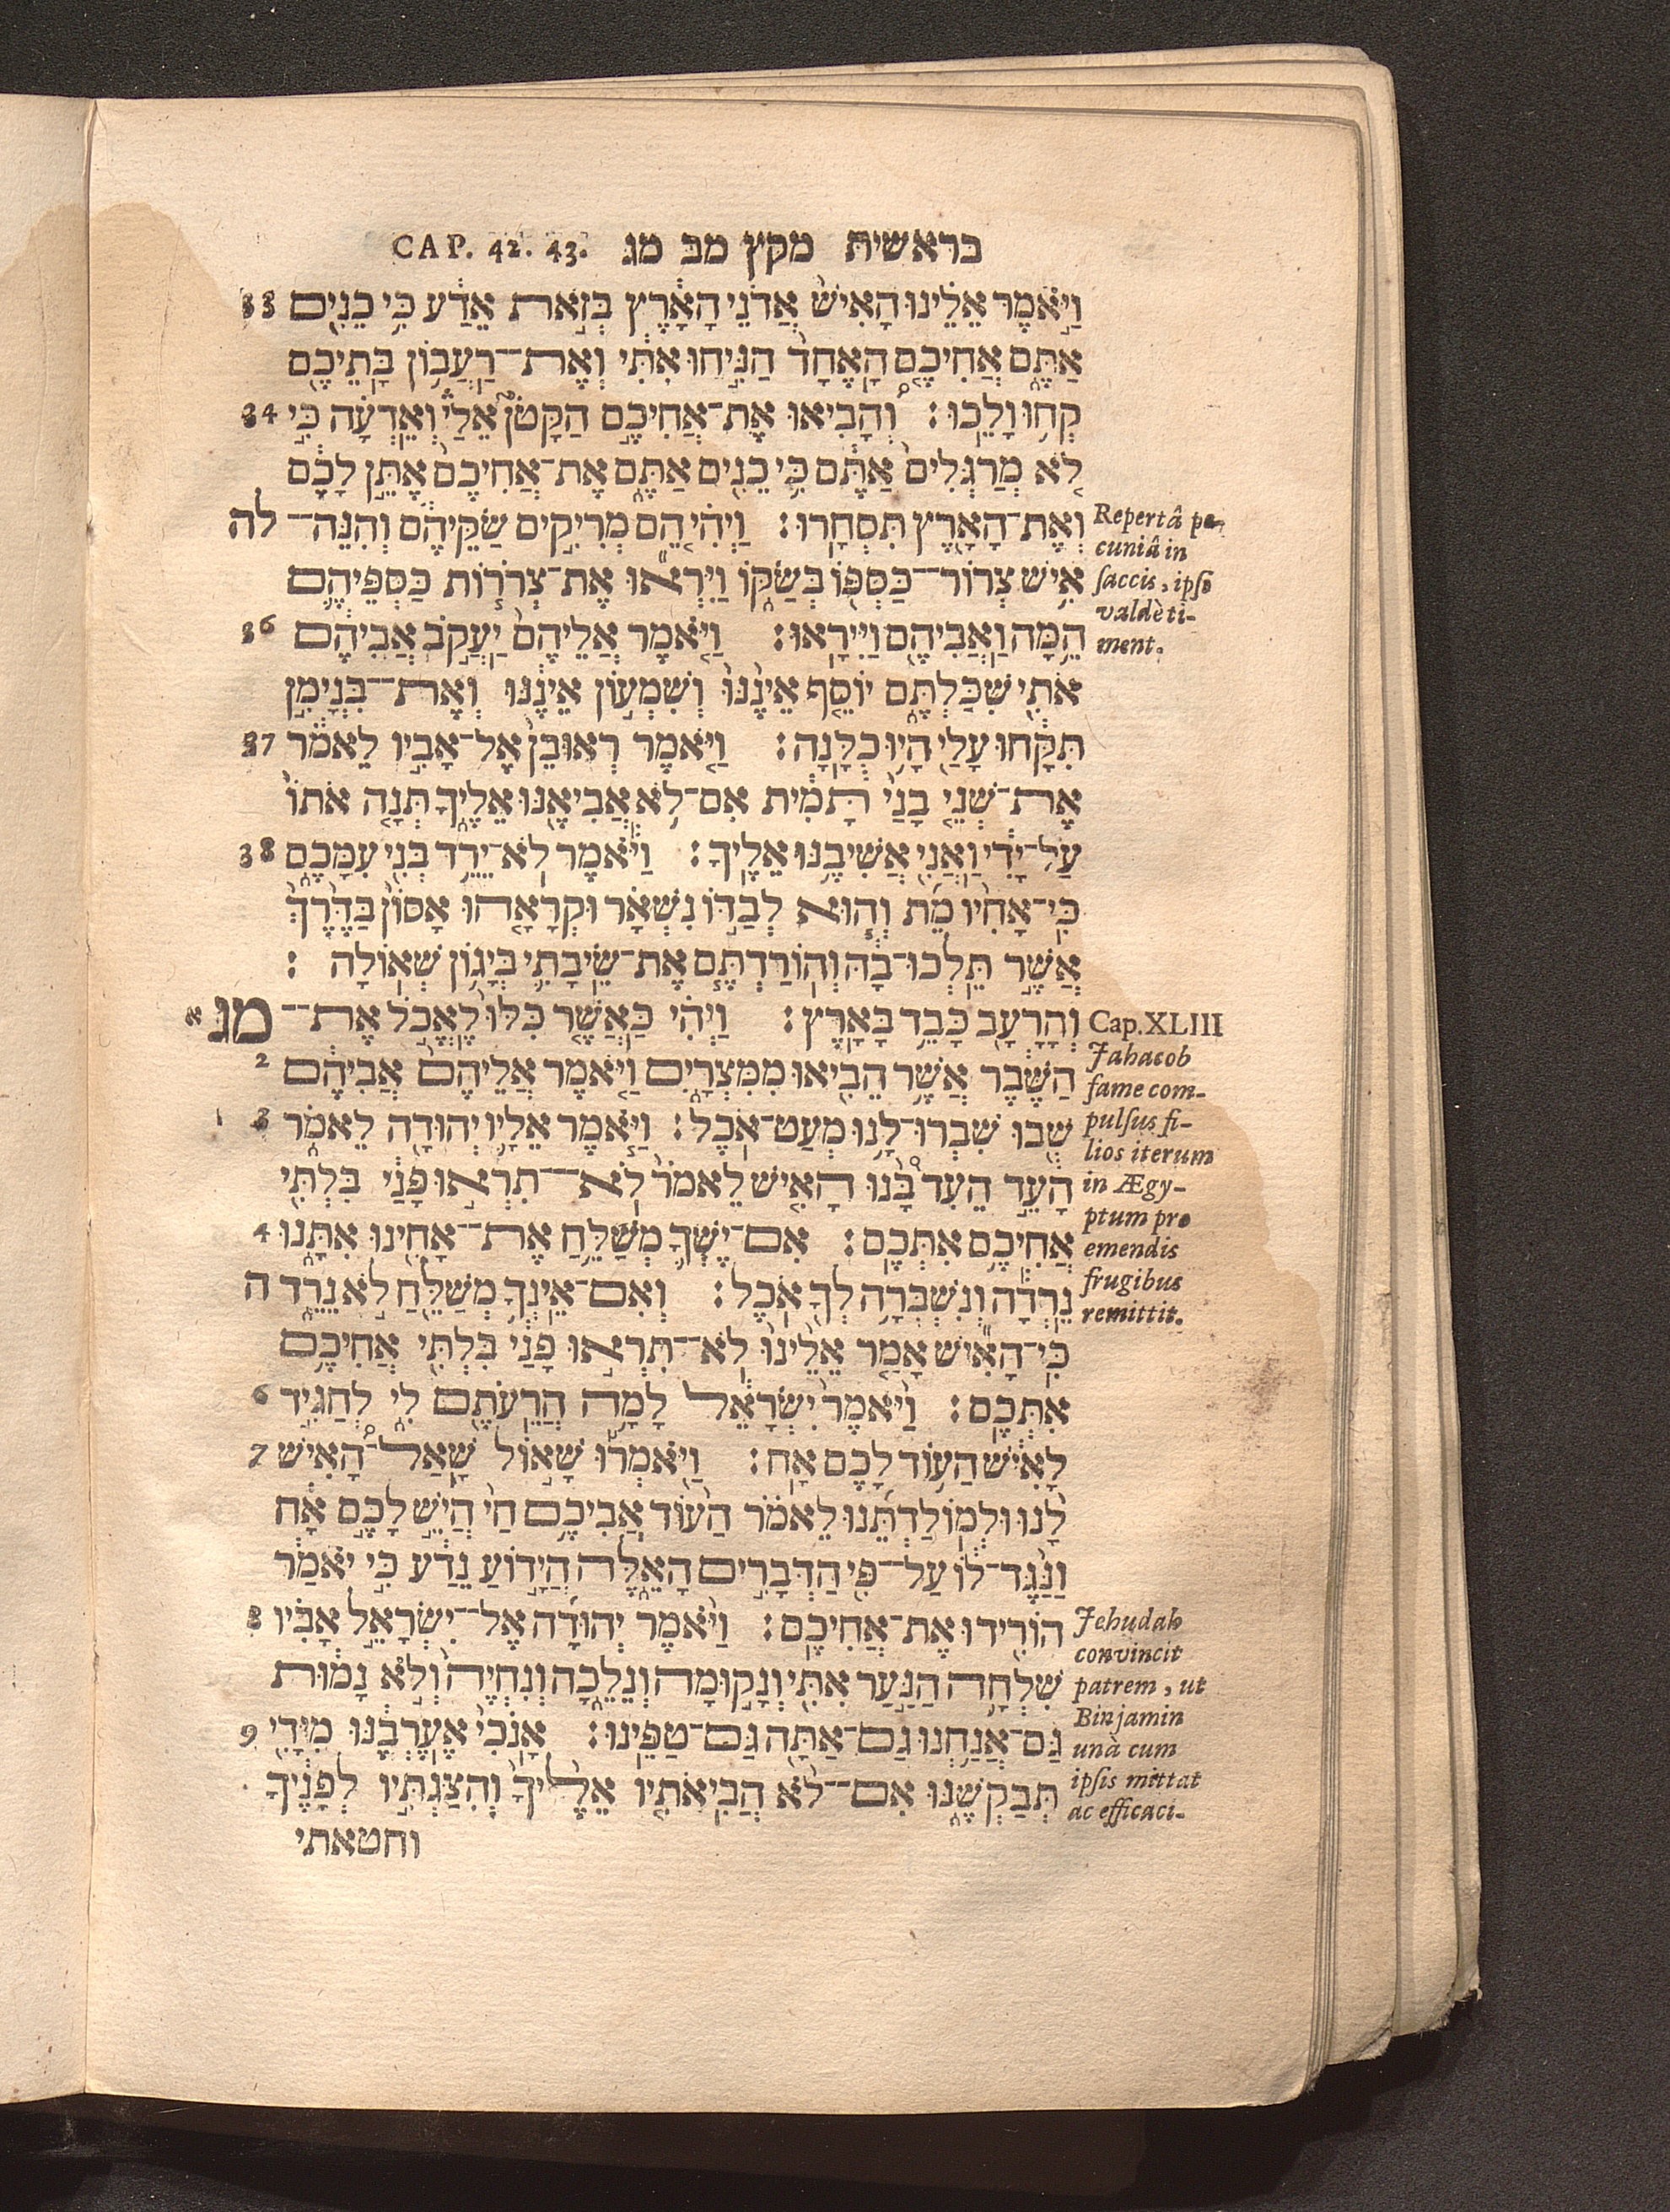 בראשית מקץ מב מג CAP. 42. 43.
וַיֹּאמֶר אֵלֵינוּ הָאִישׁ אֲדֹנֵי הָאָרֶץ בְּזֹאת אֵדַע כִּי כֵנִים 33
אַתֶּם אֲחִיכֶם הָאֶחָד הַנִּיחוּ אִתִּי וְאֶת־רַעֲבוֹן בָּתֵּיכֶם
קְחוּ וָלֵכוּ׃ וְהָבִיאוּ אֶת־אֲחִיכֶם הַקָּטֹן אֵלַי וְאֵדְעָה כִּי 34
לֹא מְרַגְּלִים אַתֶּם כִּי כֵנִים אַתֶּם אֶת־אֲחִיכֶם אֶתֵּן לָכֶם
וְאֶת־הָאָרֶץ תִּסְחָרוּ׃ וַיְהִי הֵם מְרִיקִים שַׂקֵּיהֶם וְהִנֵּה־ לה
אִישׁ צְרוֹר־כַּסְפּוֹ בְּשַׂקּוֹ וַיִּרְאוּ אֶת־צְרֹרוֹת כַּסְפֵּיהֶם
הֵמָּה וַאֲבִיהֶם וַיִּירָאוּ׃ וַיֹּאמֶר אֲלֵיהֶם יַעֲקֹב אֲבִיהֶם 36
אֹתִי שִׁכַּלְתֶּם יוֹסֵף אֵינֶנּוּ וְשִׁמְעוֹן אֵינֶנּוּ וְאֶת־בִּנְיָמִן
תִּקָּחוּ עָלַי הָיוּ כֻלָּנָה׃ וַיֹּאמֶר רְאוּבֵן אֶל־אָבִיו לֵאמֹר 37
אֶת־שְׁנֵי בָנַי תָּמִית אִם־לֹא אֲבִיאֶנּוּ אֵלֶיךָ תְּנָה אֹתוֹ
עַל־יָדִי וַאֲנִי אֲשִׁיבֶנּוּ אֵלֶיךָ׃ וַיֹּאמֶר לֹא־יֵרֵד בְּנִי עִמָּכֶם 38
כִּי־אָחִיו מֵת וְהוּא לְבַדּוֹ נִשְׁאָר וּקְרָאָהוּ אָסוֹן בַּדֶּרֶךְ
אֲשֶׁר תֵּלְכוּ־בָהּ וְהוֹרַדְתֶּם אֶת־שֵׂיבָתִי בְּיָגוֹן שְׁאוֹלָה׃
וְהָרָעָב כָּבֵד בָּאָרֶץ׃ וַיְהִי כַּאֲשֶׁר כִּלּוּ לֶאֱכֹל אֶת־ מג א
הַשֶּׁבֶר אֲשֶׁר הֵבִיאוּ מִמִּצְרָיִם וַיֹּאמֶר אֲלֵיהֶם אֲבִיהֶם 2
שֻׁבוּ שִׁבְרוּ־לָנוּ מְעַט־אֹכֶל׃ וַיֹּאמֶר אֵלָיו יְהוּדָה לֵאמֹר 3
הָעֵד הֵעִד בָּנוּ הָאִישׁ לֵאמֹר לֹא־תִרְאוּ פָנַי בִּלְתִּי
אֲחִיכֶם אִתְּכֶם׃ אִם־יֶשְׁךָ מְשַׁלֵּחַ אֶת־אָחִינוּ אִתָּנוּ 4
נֵרְדָה וְנִשְׁבְּרָה לְךָ אֹכֶל׃ וְאִם־אֵינְךָ מְשַׁלֵּחַ לֹא נֵרֵד ה
כִּי־הָאִישׁ אָמַר אֵלֵינוּ לֹא־תִרְאוּ פָנַי בִּלְתִּי אֲחִיכֶם
אִתְּכֶם׃ וַיֹּאמֶר יִשְׂרָאֵל לָמָה הֲרֵעֹתֶם לִי לְהַגִּיד 6
לָאִישׁ הַעוֹד לָכֶם אָח׃ וַיֹּאמְרוּ שָׁאוֹל שָׁאַל־הָאִישׁ 7
לָנוּ וּלְמוֹלַדְתֵּנוּ לֵאמֹר הַעוֹד אֲבִיכֶם חַי הֲיֵשׁ לָכֶם אָח
וַנַּגֶּד־לוֹ עַל־פִּי הַדְּבָרִים הָאֵלֶּה הֲיָדוֹעַ נֵדַע כִּי יֹאמַר
הוֹרִידוּ אֶת־אֲחִיכֶם׃ וַיֹּאמֶר יְהוּדָה אֶל־יִשְׂרָאֵל אָבִיו 8
שִׁלְחָה הַנַּעַר אִתִּי וְנָקוּמָה וְנֵלֵכָה וְנִחְיֶה וְלֹא נָמוּת
גַּם־אֲנַחְנוּ גַם־אַתָּה גַּם־טַפֵּינוּ׃ אָנֹכִי אֶעֶרְבֶנּוּ מִיָּדִי 9
תְּבַקְשֶׁנּוּ אִם־לֹא הֲבִיאֹתִיו אֵלֶיךָ וְהִצַּגְתִּיו לְפָנֶיךָ
וחטאתי
Repertâ pe-
cuniâ in
saccis, ipse
valdè ti-
ment.
Cap. XLIII
Jahacob
fame com-
pulsus fi-
lios iterum
in Ægy-
ptum pro
emendis
frugibus
remittit.
Jehudah
convincit
patrem, ut
Binjamin
unà cum
ipsis mittat
ac efficaci-